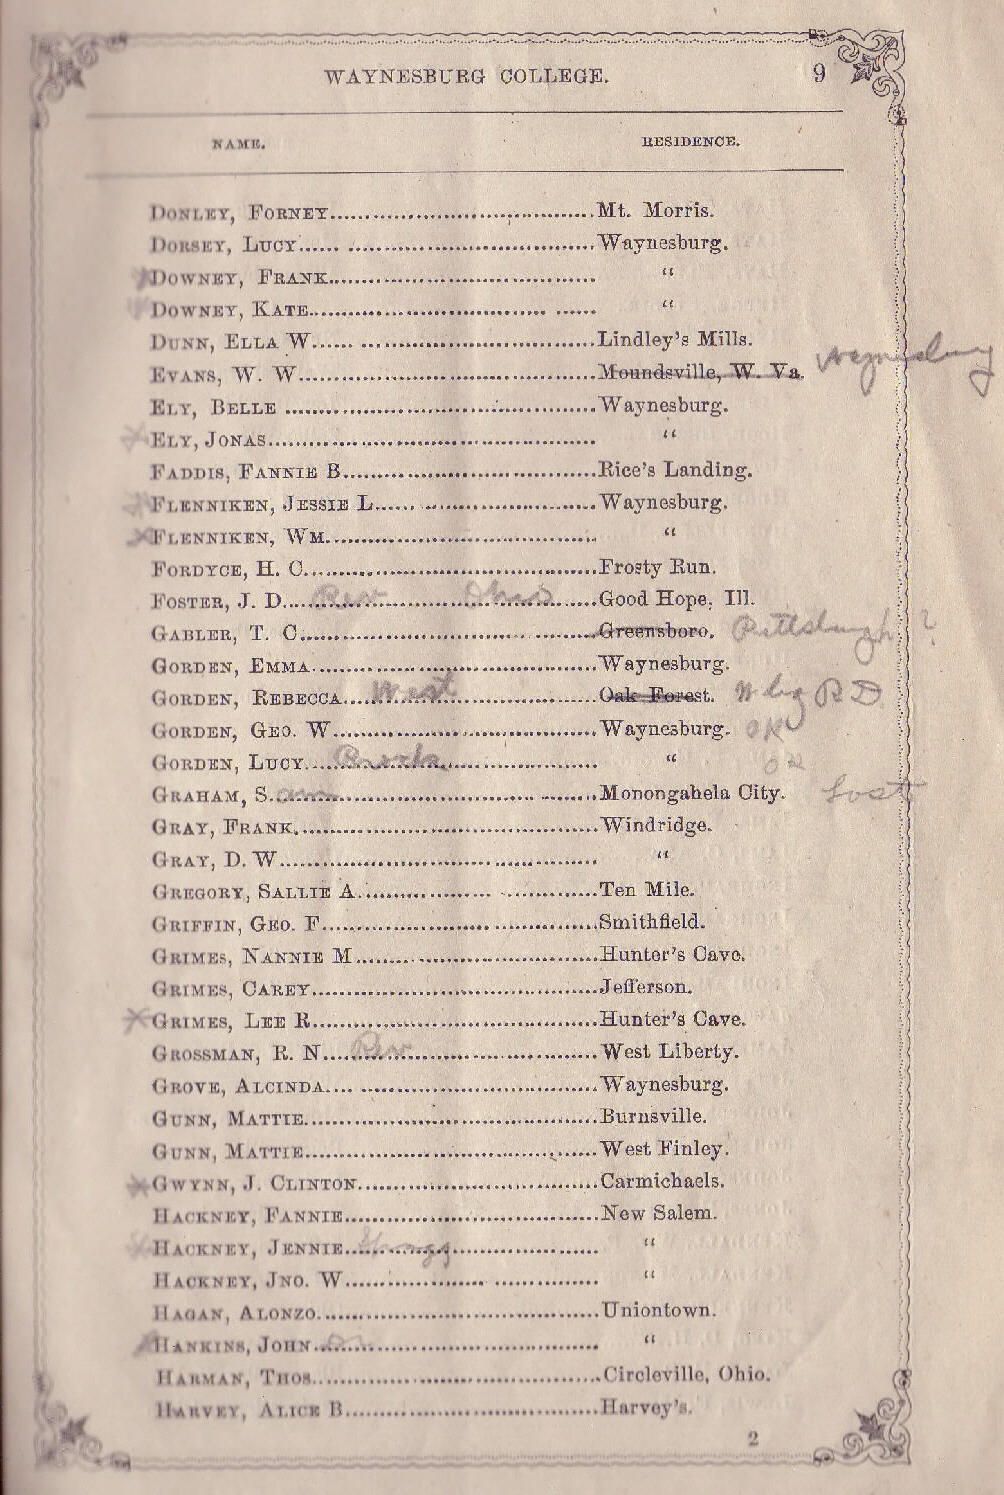 WAYNESBURG COLLEGE. 9
NAME. RESIDENCE.
DONLEY, FORNEY........Mt. Morris.
DORSEY, LUCY........Waynesburg.
DOWNEY, FRANK........"
DOWNEY, KATE........"
DUNN, ELLA W........Lindley's Mills.
EVANS, W. W........Moundsville, W. Va. Waynesburg
ELY, BELLE ........Waynesburg.
ELY, JONAS........"
FADDIS, FANNIE B........Rice's Landing.
FLENNIKEN, JESSIE L........Waynesburg.
FLENNIKEN, WM........"
FORDYCE, H. C........Frosty Run.
FOSTER, J. D. Rev Ohio........Good Hope, Ill.
GABLER, T. C........Greensboro. Pittsburgh ?
GORDEN, EMMA........Waynesburg.
GORDEN, REBECCA West........Oak Forest. W brg R D
GORDEN, GEO. W........Waynesburg. OK
GORDEN, LUCY........" OK
GRAHAM, S........Monongahela City. Lost
GRAY, FRANK........Windridge.
GRAY, D. W........"
GREGORY, SALLIE A........Ten Mile.
GRIFFIN, GEO. F........Smithfield.
GRIMES, NANNIE M........Hunter's Cave.
GRIMES, CAREY........Jefferson.
GRIMES, LEE R........Hunter's Cave.
GROSSMAN, R. N. Rev........West Liberty.
GROVE, ALCINDA........Waynesburg.
GUNN, MATTIE........Burnsville.
GUNN, MATTIE........West Finley.
GWYNN, J. CLINTON........Carmichaels.
HACKNEY, FANNIE........New Salem.
HACKNEY, JENNIE........"
HACKNEY, JNO. W........"
HAGAN, ALONZO........Uniontown.
HANKINS, JOHN........"
HARMAN, THOS........Circleville, Ohio.
HARVEY, ALICE B........Harvey's.
2